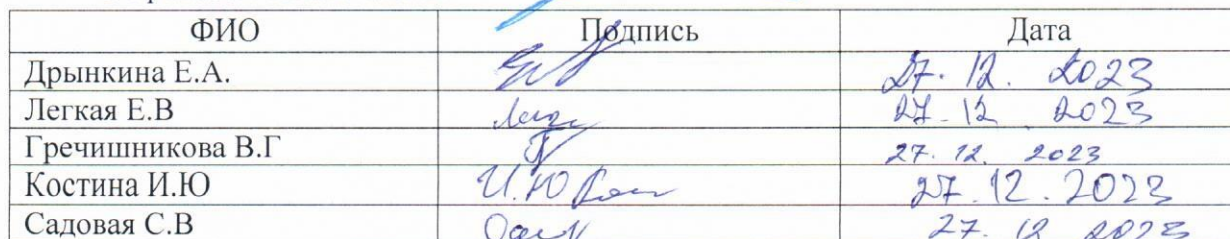 ФИО Подпись Дата
Дрынкина Е.А. 27. 12. 2023
Легкая Е.В 27. 12 2023
Гречишникова В.Г 27. 12. 2023
Костина И.Ю И.Ю 27. 12. 2023
Садовая С.В 27. 12 2023